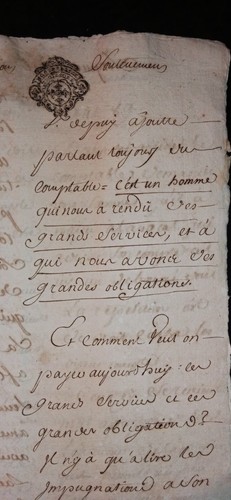 Soutenemens
Sr. depuy ajoutte
parlant toujours du
Comptable = C'est un homme
qui nous a rendu des
grands Services, et à
qui nous avons des
grandes obligations.
Et Comment veut on
payer aujourd'huy ces
grands Services et ces
grandes obligations?
Il n'y à qu'a lire les
Impugnations a son